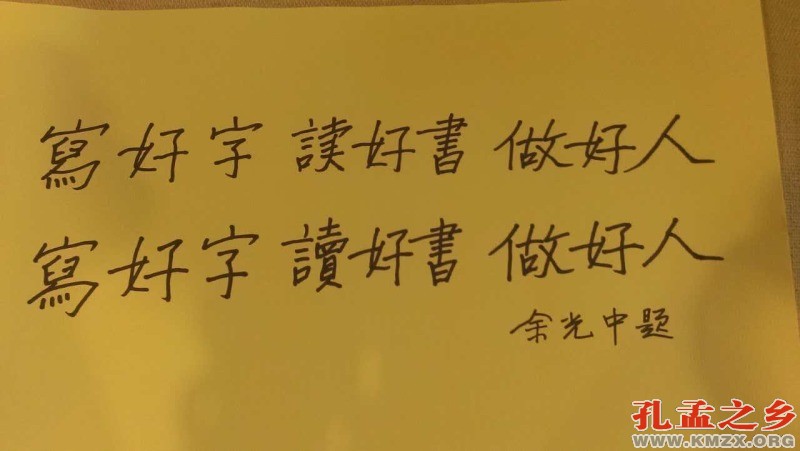 寫好字 読好書 做好人
寫好字 讀好書 做好人
余光中题
孔孟之乡
WWW.KMZX.ORG